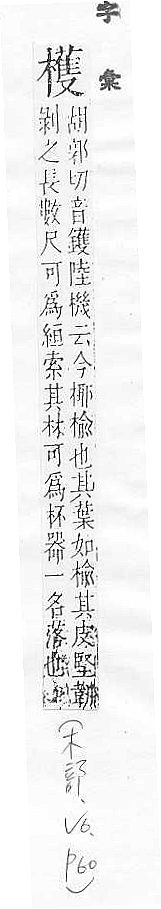 字彙
檴
胡郭切音鑊陸機云今椰楡也其葉如楡其皮堅韌
剝之長數尺可爲絙索其材可爲杯器一名落也
(木部、V6、P60)